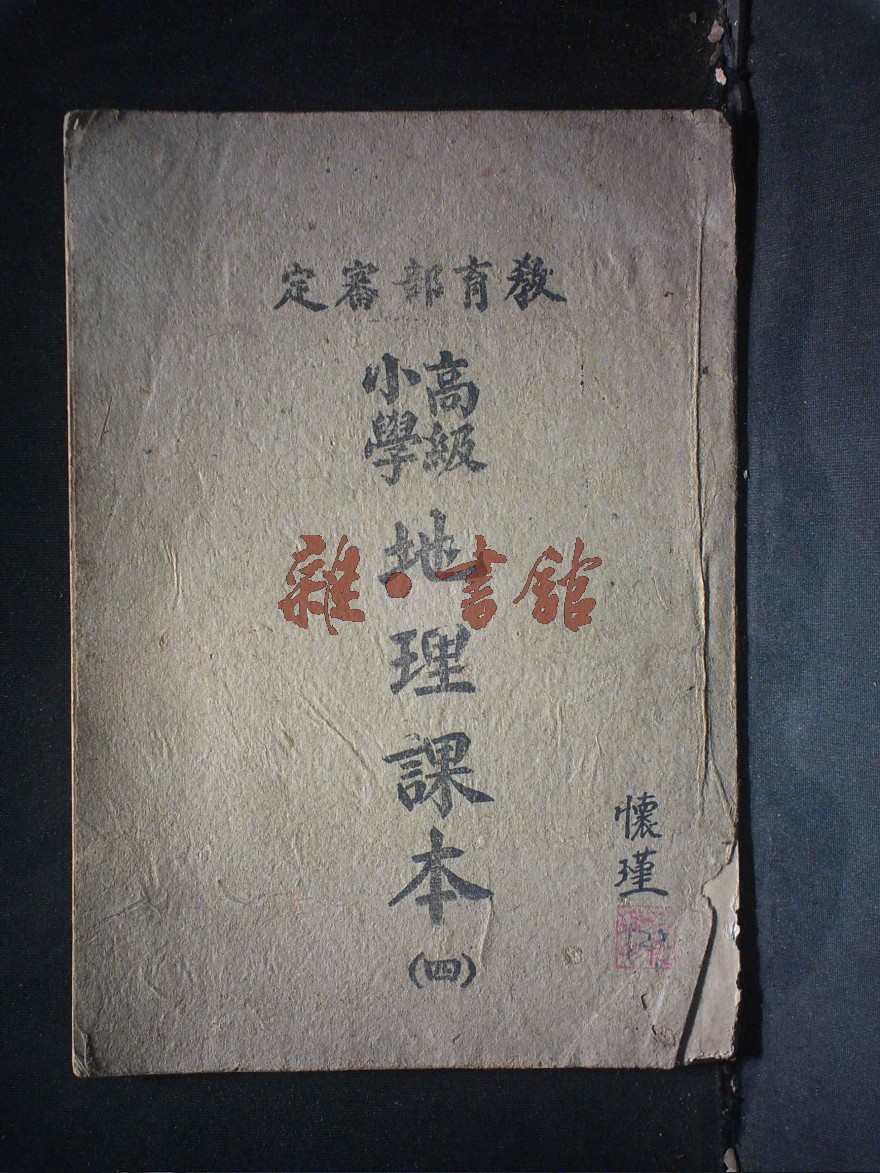 教育部審定
高級
小學
地理課本(四)
雜·書舘
懷瑾